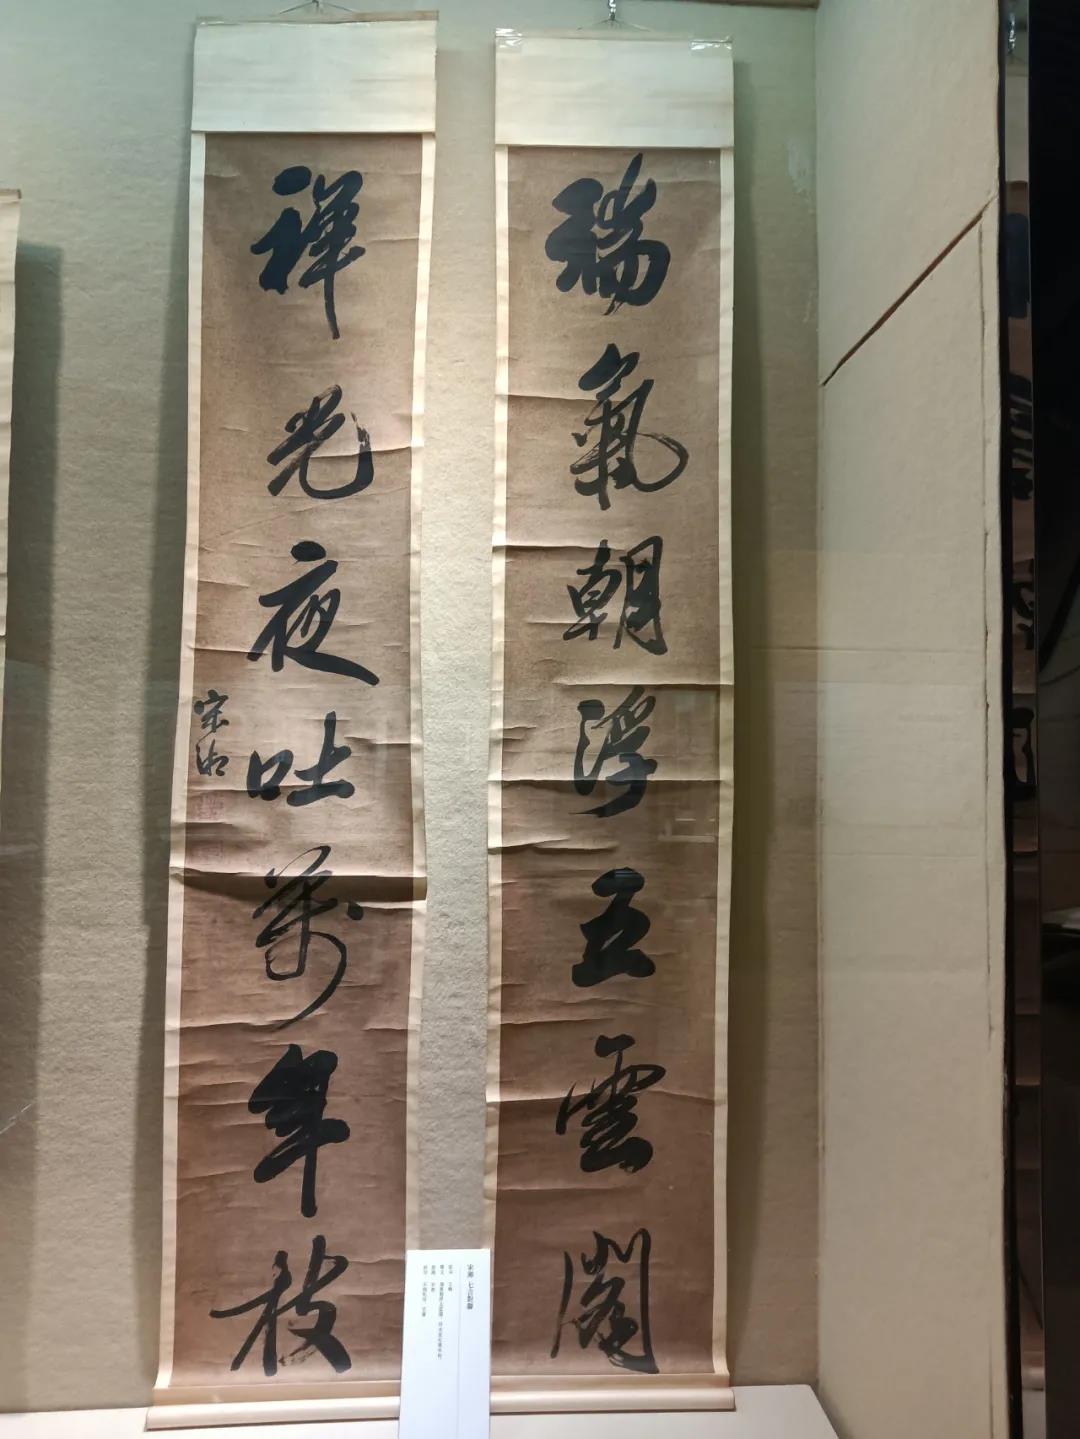 瑞氣朝浮五雲閣
祥光夜吐萬年枝
宋湘
宋湘 七言對聯